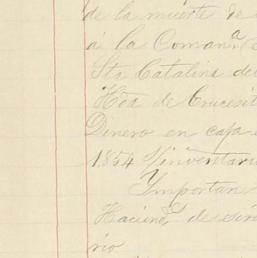 de la muerte de
á la Comanª
Sta Catalina de
Hda de Crucesit
Dinero en caja
1854 Ynventari
Ymportan
Haciend de
rio